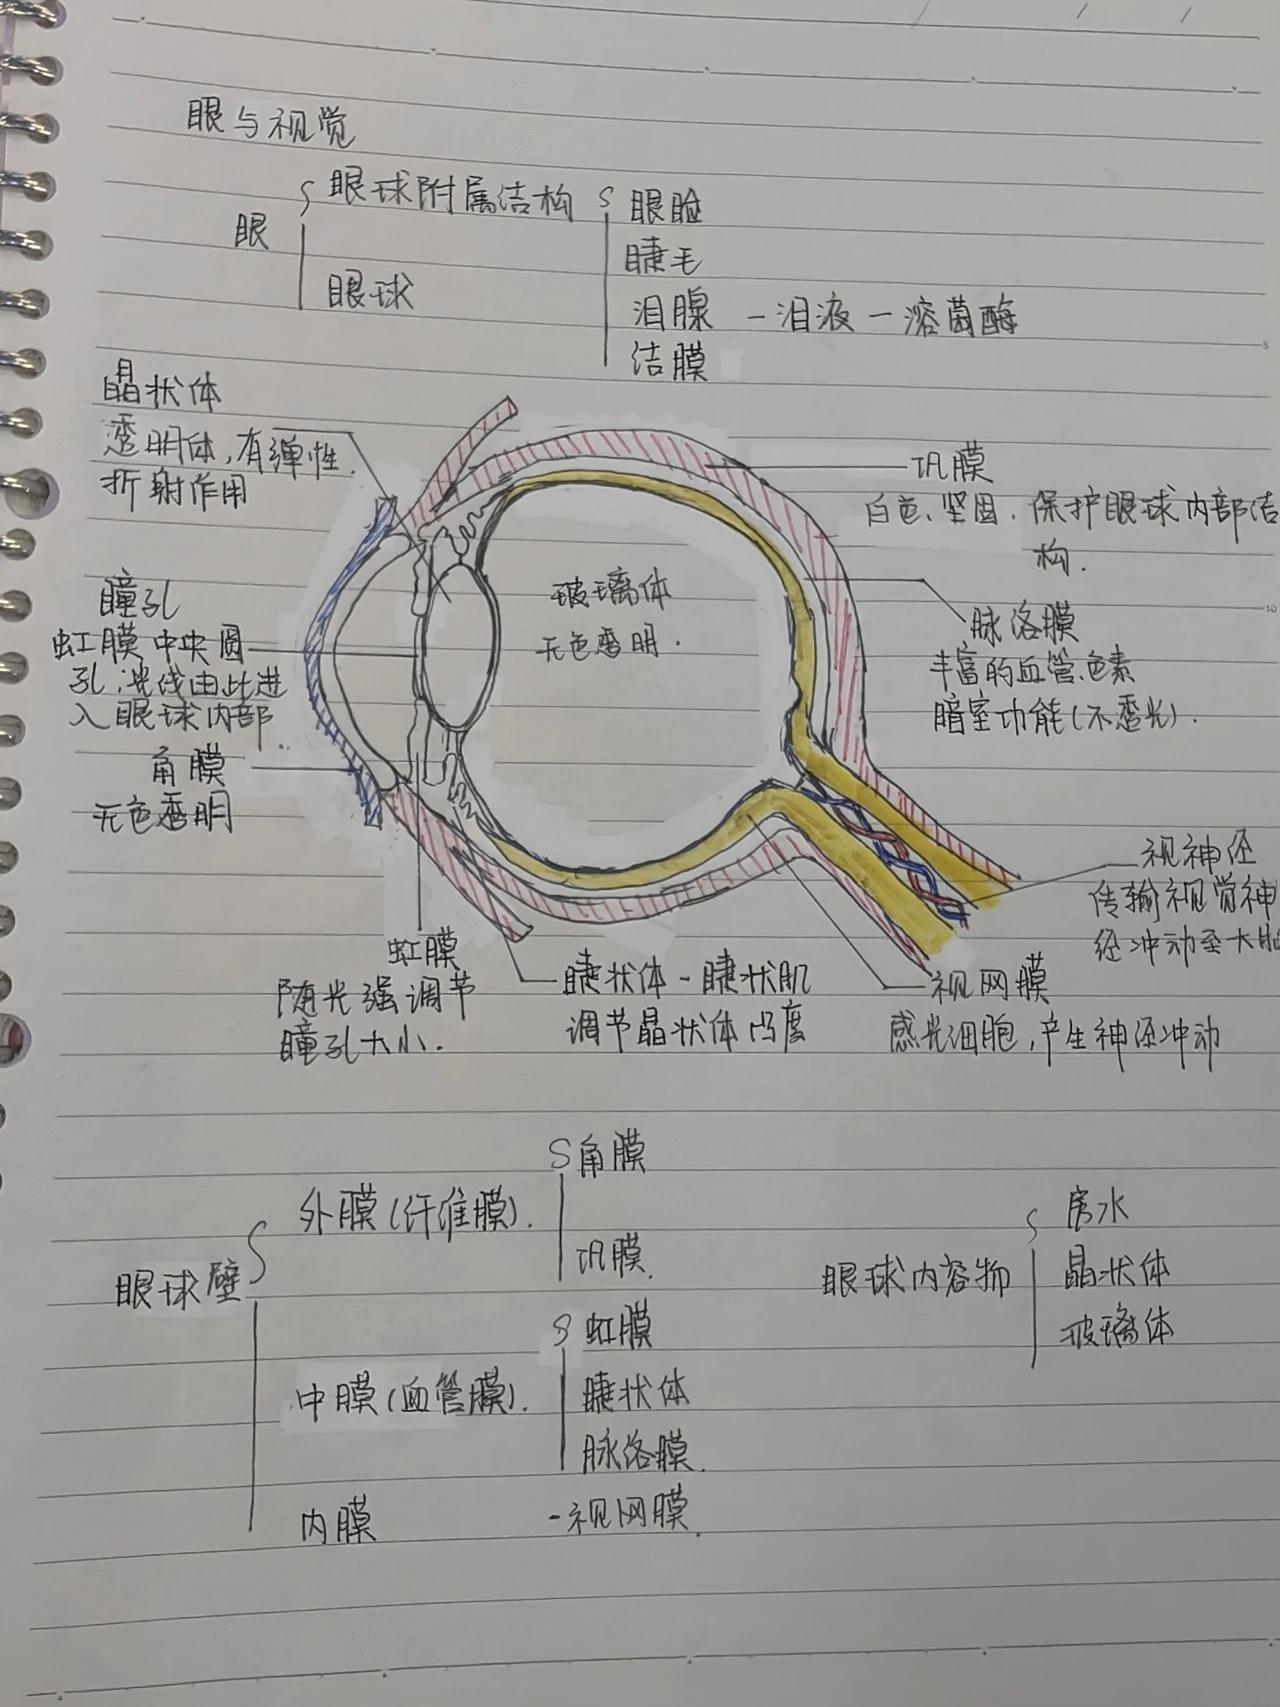 眼与视觉
眼球附属结构
眼
眼球
眼睑
睫毛
泪腺 - 泪液 - 溶菌酶
结膜
晶状体
透明体,有弹性.
折射作用
瞳孔
虹膜中央圆
孔,光线由此进
入眼球内部.
角膜
无色透明
玻璃体
无色透明.
巩膜
白色、坚固.保护眼球内部结
构.
脉络膜
丰富的血管.色素
暗室功能(不透光).
视神经
传输视觉神
经冲动至大脑
虹膜
随光强调节
瞳孔大小.
睫状体 - 睫状肌
调节晶状体凸度
视网膜
感光细胞,产生神经冲动
眼球壁
外膜(纤维膜).
角膜
巩膜.
中膜(血管膜).
虹膜
睫状体
脉络膜.
内膜
-视网膜.
眼球内容物
房水
晶状体
玻璃体
5
10